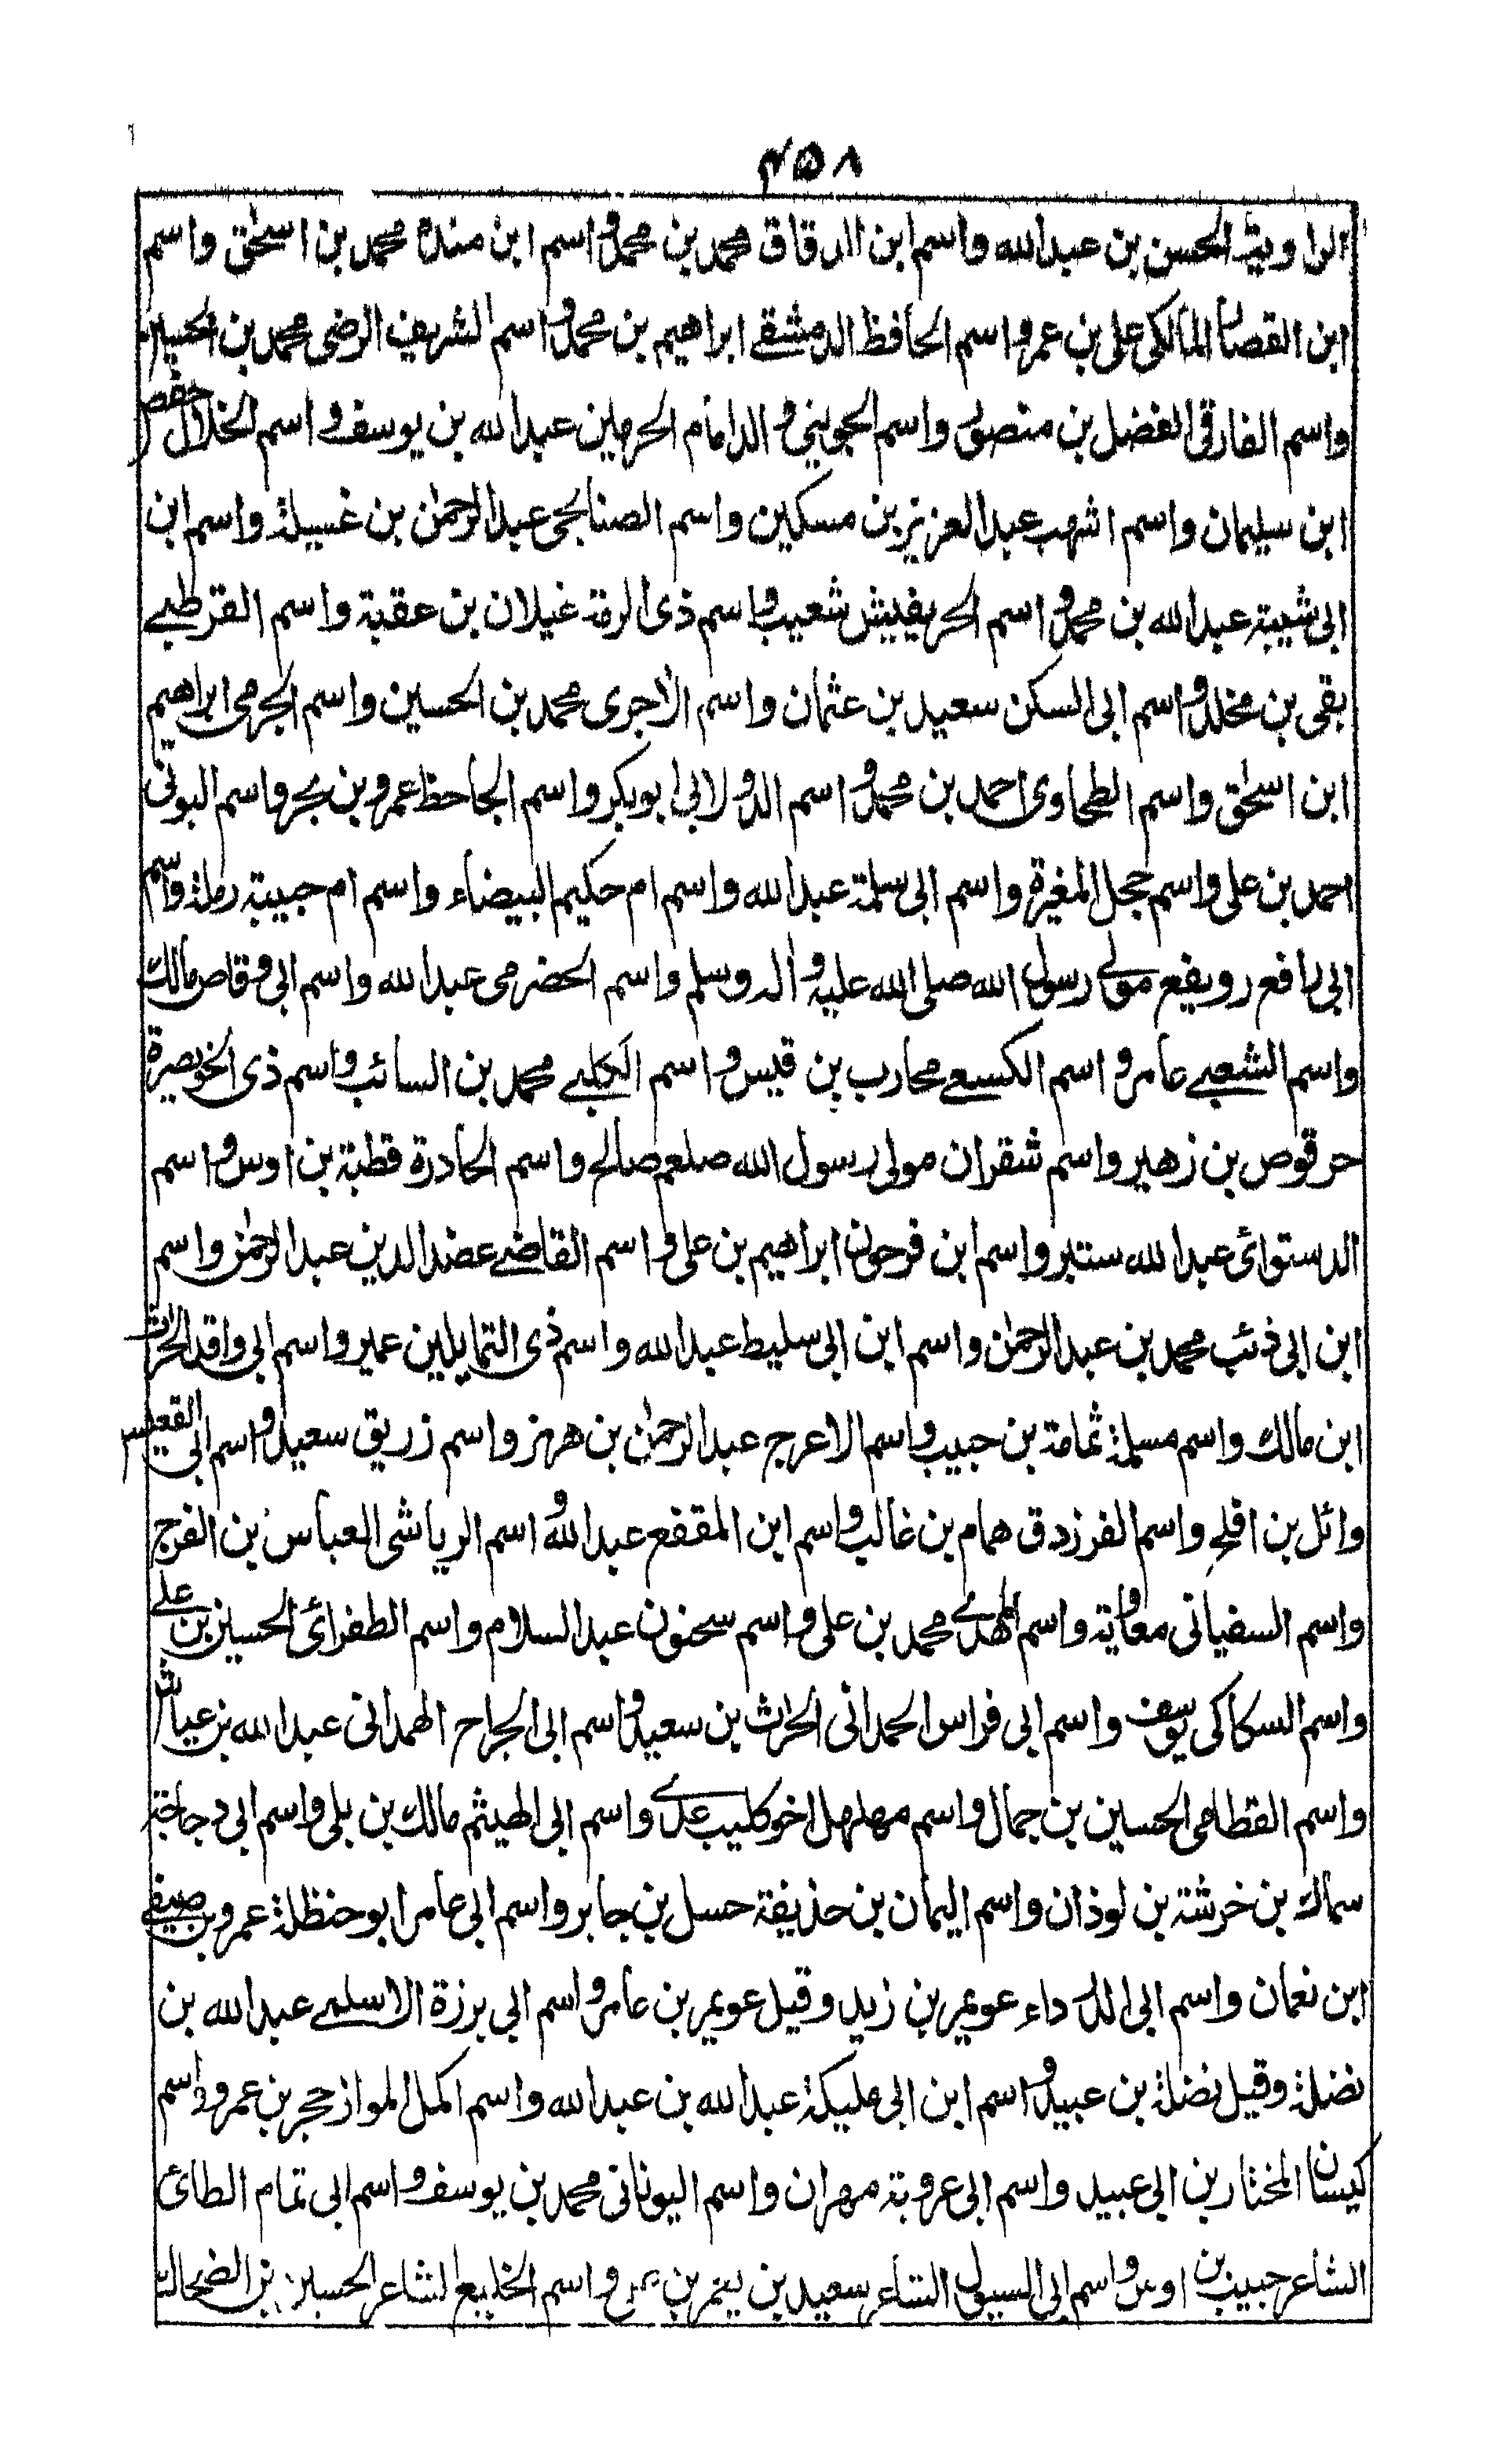 ٤٥٨
الراويۃ الحسن بن عبدالله واسم ابن الدقاق محمد بن محمد واسم ابن مندة محمد بن اسحٰق واسم
ابن القصار المالكى على بن عمر واسم الحافظ الدمشقے ابراهيم بن محمد واسم الشريف الرضى محمد بن الحسين
واسم الفارقى الفضل بن منصور واسم الجوينى والد امام الحرمين عبدالله بن يوسف واسم الخلال حفص
ابن سليمان واسم اشهب عبد العزيز بن مسكين واسم الصنابحى عبدالرحمٰن بن غسيلة واسم ابن
ابى شيبة عبدالله بن محمد واسم الحريفيش شعيب واسم ذى الرمة غيلان بن عقبة واسم القرطبے
بقى بن مخلد واسم ابى السكن سعيد بن عثمان واسم الاجرى محمد بن الحسين واسم الجرمى ابراهيم
ابن اسحٰق واسم الطحاوى احمد بن محمد واسم الدولابى ابوبكر واسم الجاحظ عمرو بن بحر واسم البونى
احمد بن على واسم جحل المغيرة واسم ابى سلمة عبدالله واسم ام حكيم البيضاء واسم ام حبيبة رملة واسم
ابى رافع رويفع مولے رسول الله صلى الله عليه واله وسلم واسم الحضرمى عبدالله واسم ابى وقاص مالك
واسم الشعبے عامر واسم الكسعے محارب بن قيس واسم الكلبے محمد بن السائب واسم ذى الخويصرة
حرقوص بن زهير واسم شقران مولى رسول الله صلعم صالح واسم الحادرة قطبة بن اوس واسم
الدستوائى عبدالله سنتبر واسم ابن فرحون ابراهيم بن على واسم القاضے عضد الدين عبدالرحمٰن واسم
ابن ابى ذئب محمد بن عبدالرحمٰن واسم ابن ابى سليط عبدالله واسم ذى الشمالين عمير واسم ابى واقد الحرث
ابن مالك واسم مسيلمة ثمامة بن حبيب واسم الاعرج عبدالرحمٰن بن هرمز واسم زريق سعيد واسم ابى القعيس
وائل بن افلح واسم الفرزدق همام بن غالب واسم ابن المقفع عبدالله واسم الرياشى العباس بن الفرج
واسم السفيانى معاوية واسم المهدے محمد بن على واسم سحنون عبد السلام واسم الطغرائى الحسين بن علے
واسم السكاكى يوسف واسم ابى فراس الحمدانى الحٰرث بن سعيد واسم ابى الجراح الهمدانى عبدالله بن عياش
واسم القطامى الحسين بن جمال واسم مهلهل اخو كليب عدے واسم ابى الهيثم مالك بن بلى واسم ابى دجاجة
سماك بن خرشة بن لوذان واسم اليمان بن حذيفة حسل بن جابر واسم ابى عامر ابو حنظلة عمرو بن صيفے
ابن نعمان واسم ابى الدرداء عويمر بن زيد وقيل عويمر بن عامر واسم ابى برزة الاسلمے عبدالله بن
نضلة وقيل نضلة بن عبيد واسم ابن ابى مليكة عبدالله بن عبدالله واسم اكمل الموازحجر بن عمرو واسم
كيسان المختار بن ابى عبيد واسم ابى عروبة مهران واسم اليونانى محمد بن يوسف واسم ابى تمام الطائى
الشاعر حبيب بن اوس واسم ابى السبول الشاعر سعيد بن واسم الخليع الشاعر الحسين بن الضحاك